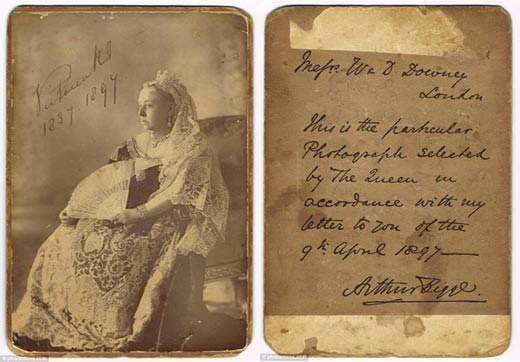 1837. 1897
Messrs W & D Downey
London
This is the particular
Photograph selected
by The Queen in
accordance with my
letter to you of the
9th April 1897—
Arthur Bigge.